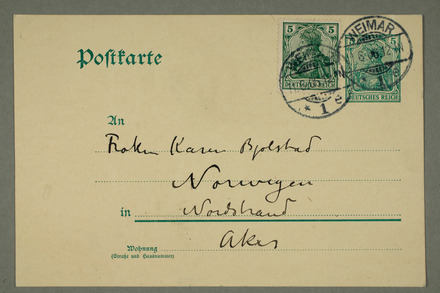 Postkarte
5
5
DEUTSCHES REICH
DEUTSCHES REICH
WEIMAR
* 1 e
An
Frøken Karen Bjølstad
Norwegen
in Nordstrand
Aker
Wohnung
(Straße und Hausnummer)